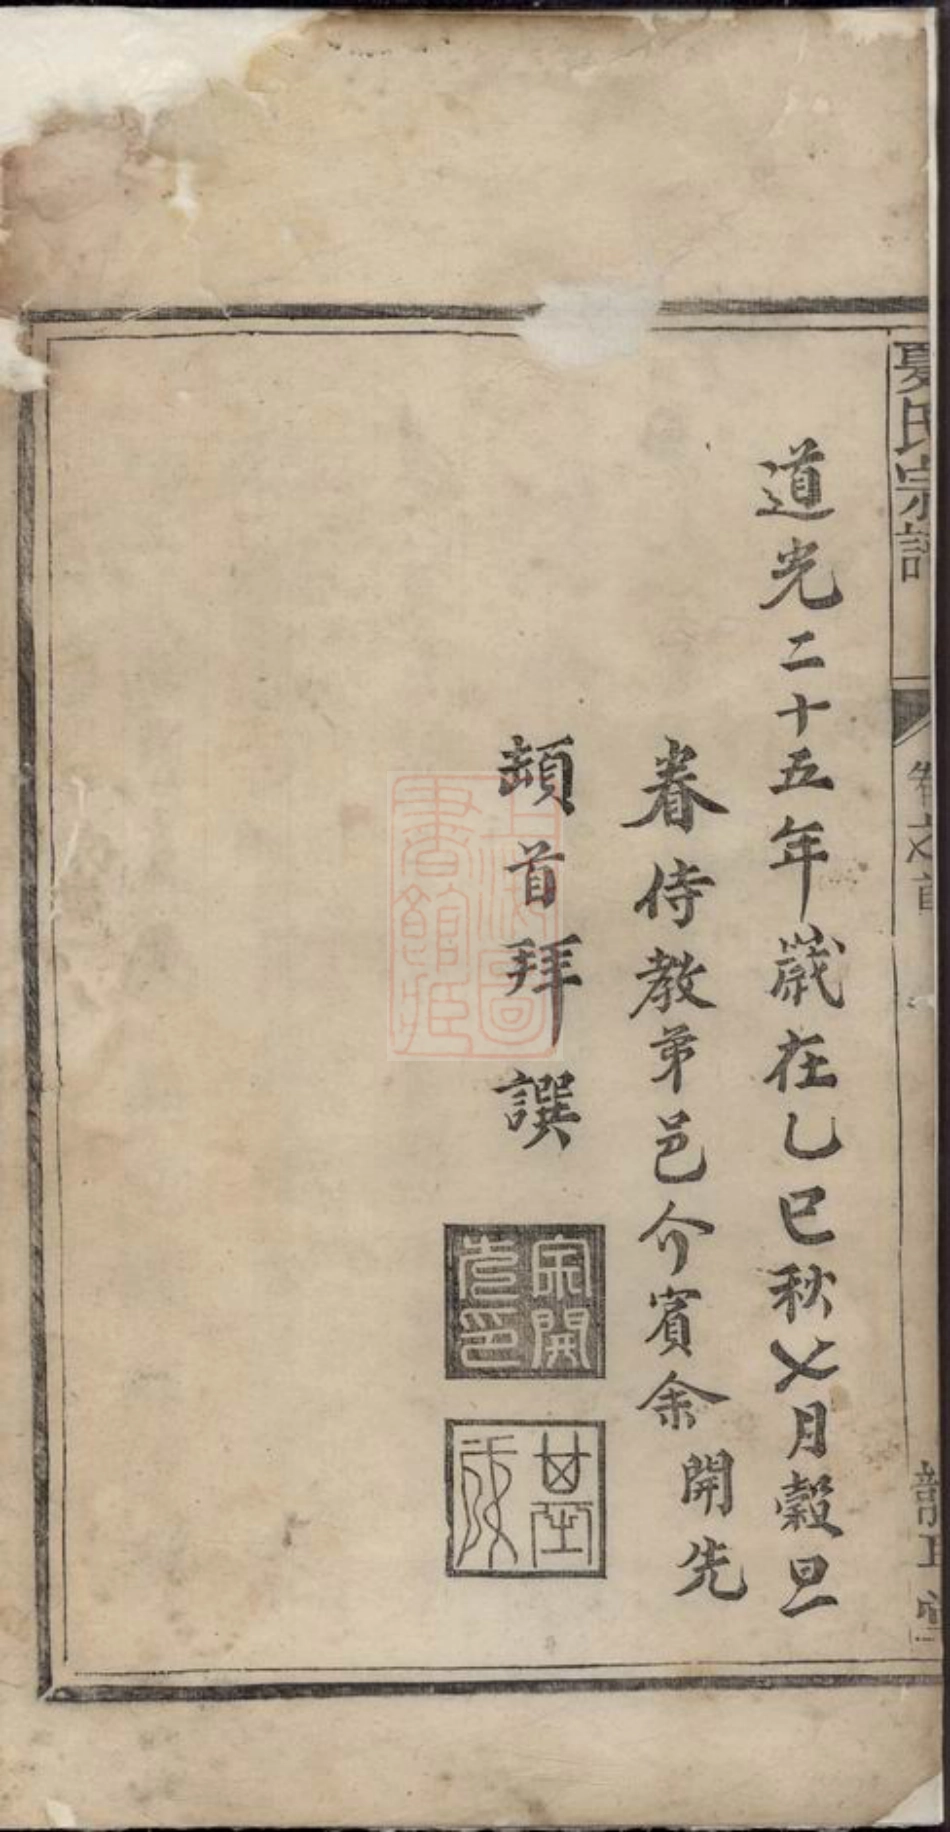 夏氏宗譜
卷之首
道光二十五年歲在乙巳秋七月穀旦
眷侍教弟邑介賓余開先
頓首拜譔
上海圖書館藏